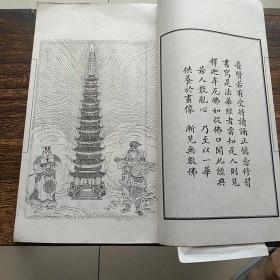 普賢若有受持讀誦正憶念修習
書寫是法華經者當知是人則見
釋迦牟尼佛如從佛口聞此經典
若人散亂心　乃至以一華
供養於畫像　漸見無數佛